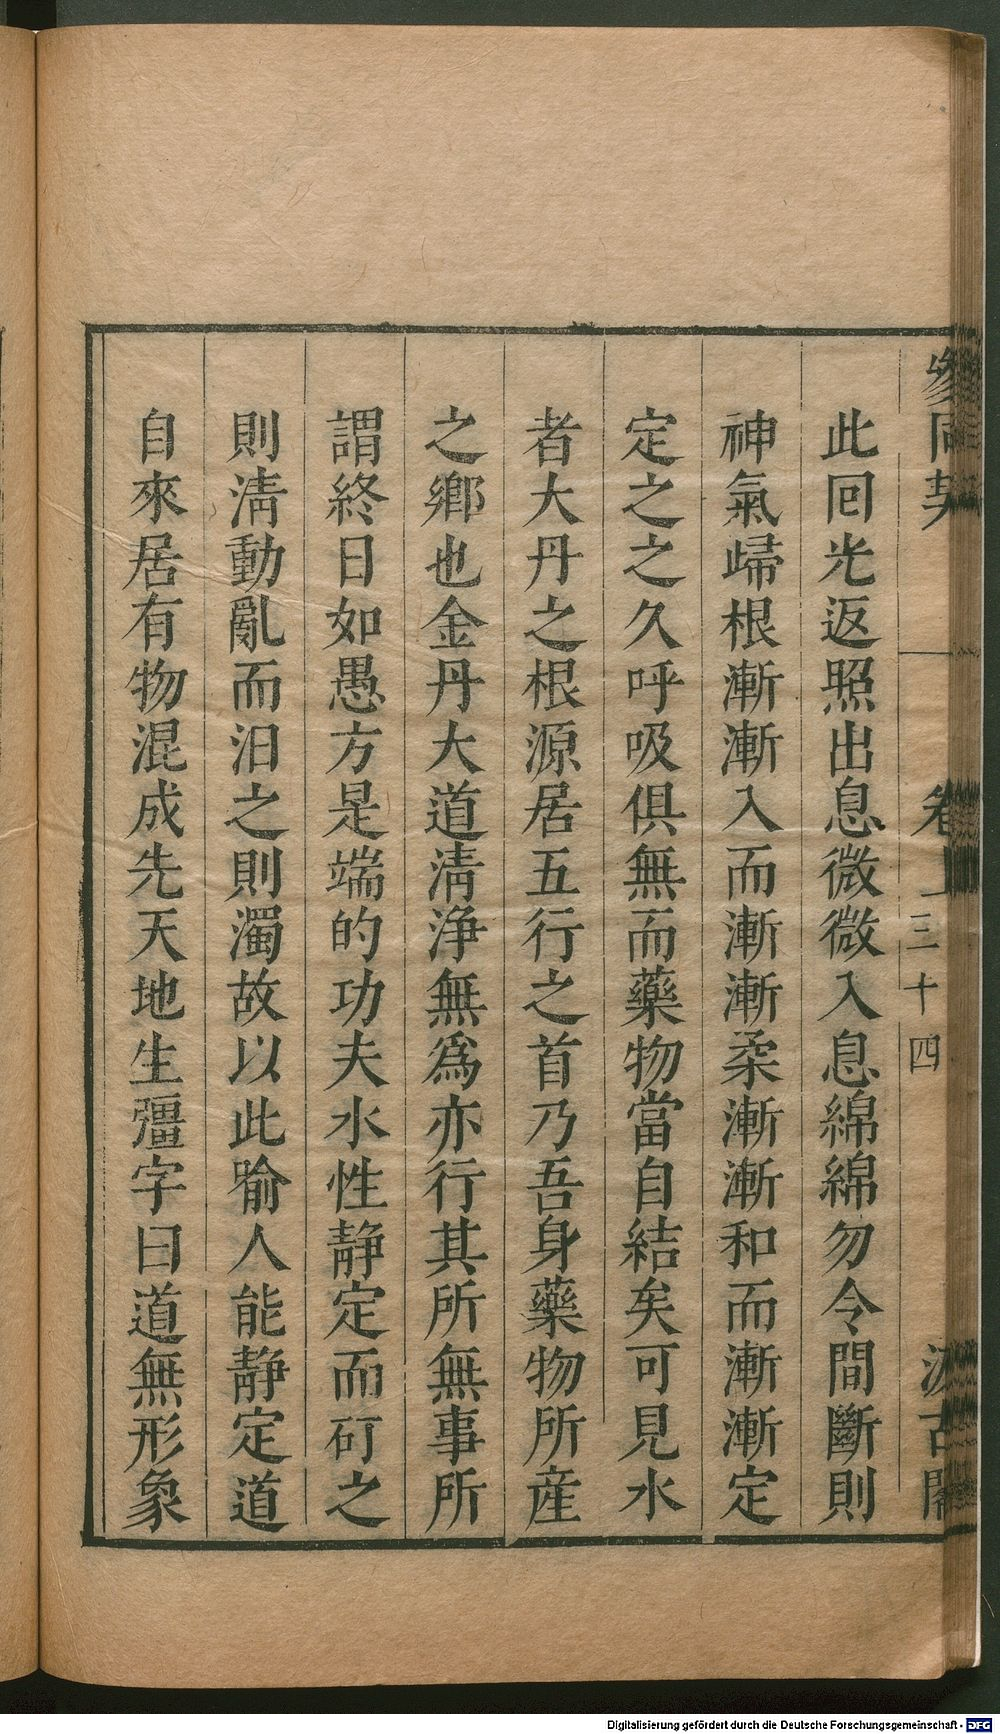 參同契 卷上 三十四 汲古閣
此回光返照出息微微入息綿綿勿令間斷則
神氣歸根漸漸入而漸漸柔漸漸和而漸漸定
定之之久呼吸俱無而藥物當自結矣可見水
者大丹之根源居五行之首乃吾身藥物所産
之鄉也金丹大道清淨無爲亦行其所無事所
謂終日如愚方是端的功夫水性靜定而矴之
則清動亂而汩之則濁故以此喻人能靜定道
自來居有物混成先天地生彊字曰道無形象
Digitalisierung gefördert durch die Deutsche Forschungsgemeinschaft - DFG